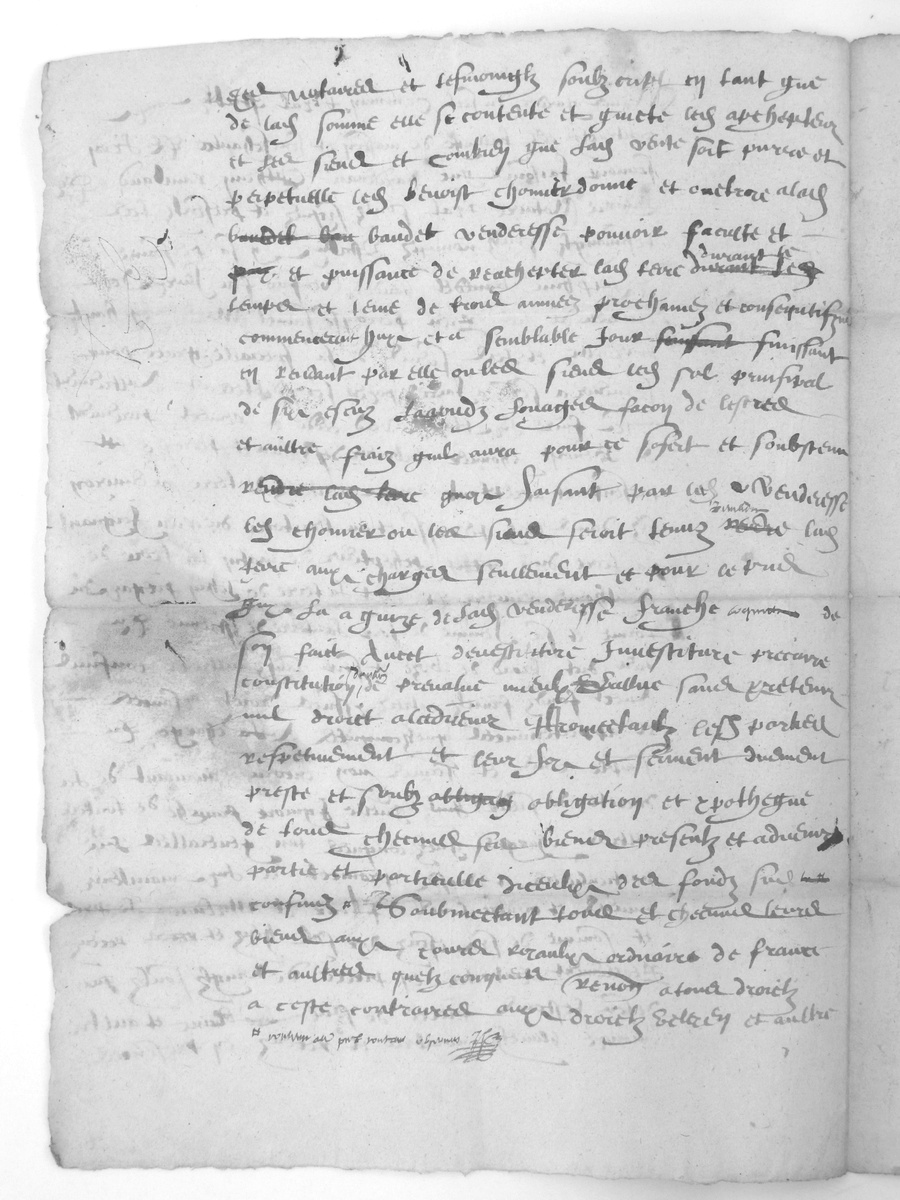 notaires et tesmoingtz soubz script en tant que
de lad somme elle se contente et quicte led achepteur
et les siens et combien que lad vente soit purre et
perpetuelle led benoist chomier donne et oultroie a lad
baudet venderesse pouvoir faculte et
et puissance de reachepter lad terre durant le
temps et terme de trois annees prochaines et consequtifves
commencerant huy et a semblable jour finissant
en rendant par elle ou les siens led sol principal
de six escuz façon de lectres
et aultre fraiz quil aura pour ce soffert et soubstenu
rendre lad terre quoy faisant par lad venderesse
led chomier ou les siens seroit tenuz rendre lad
terre aux charges seullement et pour le pris
de lad venderesse franche de
son faict Avect devestiture Investiture precaire
constitution de prevalue mieulx vallue sans retenir
nul droict a ladvenir Promectantz lesd parties
respetivement et leur foy et serment duement
preste et soubz obligation et ypotheque
de tous checuns ses biens presentz et advenir
partie et particulle diceulx des fondz sus
confinez # Soubmectant tous et checuns leurs
biens aux cours royaulx ordinaires de france
et aultres quelzconques Renon a tous droictz
a ceste contraires aux droictz et aultre